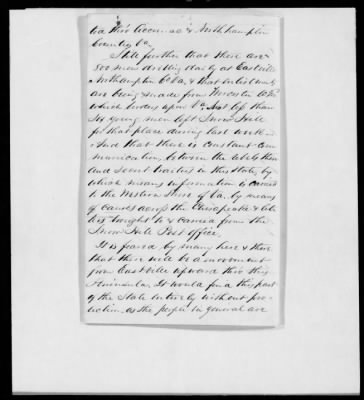 via thro Accomac & Northhampton
Counties Va.
Still further that there are
800 men drilling daily at Eastville
Northampton Co Va, & that enlistments
are being made from Worcester Co Md
which borders upon Va. Not less than
Six young men left Snow Hill
for that place during last week –
And that there is constant Com
munication, between the rebels there
and Secret traitors in this State, by
which means information is carried
to the Western Shore of Va. by means
of canoes across the Chesapeake & let
ters brought to & carried from the
Snow Hill Post office.
It is feared by many here & there
that there will be a movement
from Eastville upward thro this
Peninsula. It would find this part
of the State entirely without pro
tection, as the people in general are